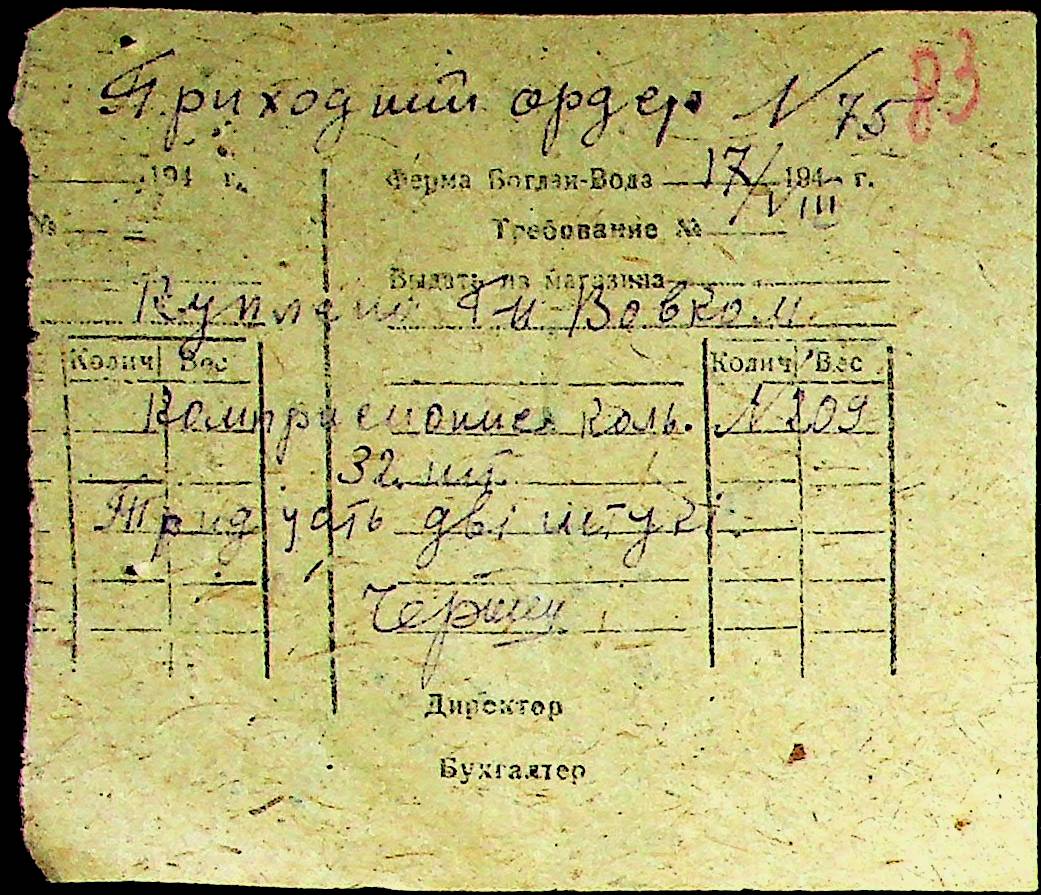 Приходний ордер N 75 83
194 г. Ферма Богдан-Вода 17/VIII 194 г.
№ Требование №
Выдать из магазина
Куплено Вовком
Колич Вес Колич Вес
коль. N 209
32 шт
Тридцать дві штукі
Директор
Бухгалтер